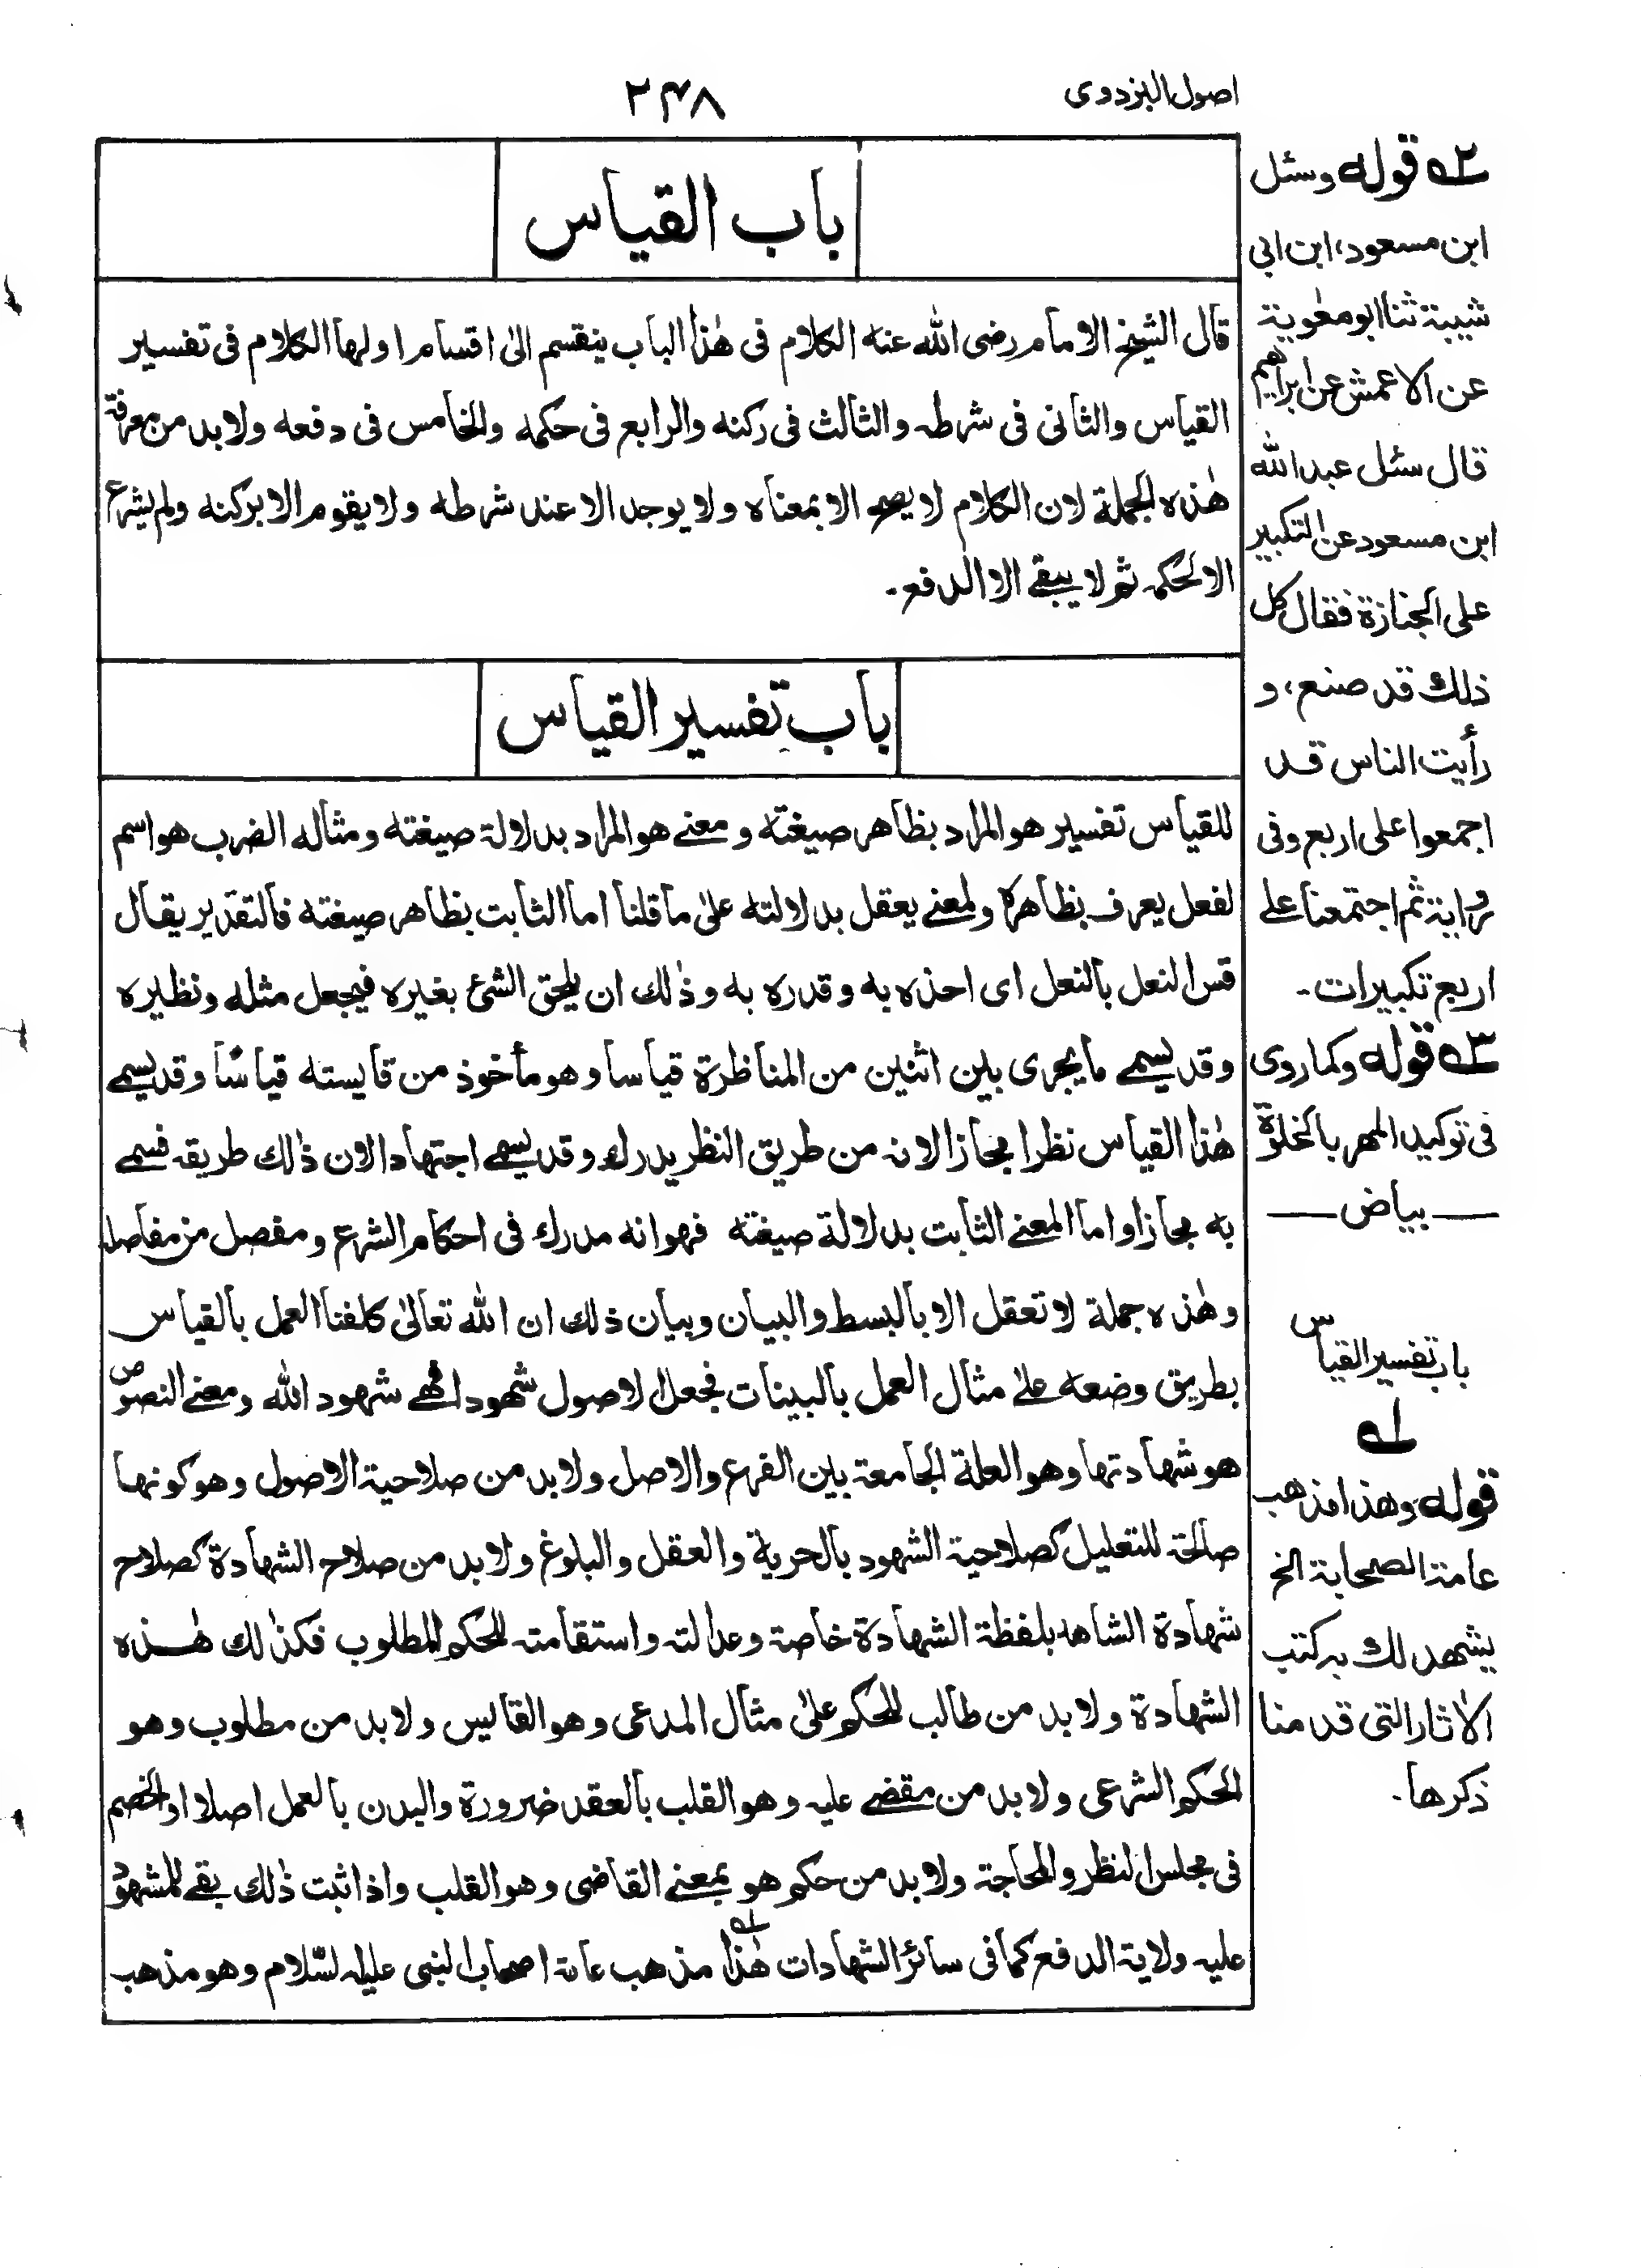 اصول البزدوی
۲۴۸
باب القیاس
قال الشیخ الامام رضی اللّٰه عنه الکلام فی هٰذا الباب ینقسم الیٰ اقسام اولها الکلام فی تفسیر
القیاس والثانی فی شرطه والثالث فی رکنه والرابع فی حکمه والخامس فی دفعه ولابد من معرفة
هٰذه الجملة لان الکلام لا یصح الا بمعناه ولا یوجد الا عند شرطه ولا یقوم الا برکنه ولم یشرع
الا لحکمه ثم لا یبقی الا الدفع۔
باب تفسیر القیاس
للقیاس تفسیر هو المراد بظاهر صیغته و معنی هو المراد بدلالة صیغته ومثاله الضرب هو اسم
لفعل یعرف بظاهره ولمعنی یعقل بدلالته علیٰ ما قلنا اما الثابت بظاهر صیغته فالتقدیر یقال
قس النعل بالنعل ای احذه به وقدره به وذٰلک ان یلحق الشئ بغیره فیجعل مثله ونظیره
وقد یسمی ما یجری بین اثنین من المناظرة قیاسا وهو مأخوذ من قایسته قیاسًا وقد یسمی
هٰذا القیاس نظرا مجازا لانه من طریق النظر یدرک وقد یسمی اجتهادا لان ذٰلک طریقه فسمی
به مجازا واما المعنی الثابت بدلالة صیغته فهو انه مدرک فی احکام الشرع ومفصل من مفاصله
وهٰذه جملة لا تعقل الا بالبسط والبیان وبیان ذلک ان اللّٰه تعالیٰ کلفنا العمل بالقیاس
بطریق وضعه علیٰ مثال العمل بالبینات فجعل الاصول شهودا فهی شهود اللّٰه ومعنی النصوص
هو شهادتها وهو العلة الجامعة بین الفرع والاصل ولابد من صلاحیة الاصول وهو کونها
صالحة للتعلیل کصلاحیة الشهود بالحریة والعقل والبلوغ ولابد من صلاح الشهادة کصلاح
شهادة الشاهد بلفظة الشهادة خاصة وعدالته واستقامته للحکم المطلوب فکذٰلک هٰذه
الشهادة ولابد من طالب للحکم علیٰ مثال المدعی وهو القایس ولابد من مطلوب وهو
الحکم الشرعی ولابد من مقضی علیه وهو القلب بالعقد ضرورة والبدن بالعمل اصلا او الخصم
فی مجلس النظر والمحاجة ولابد من حکم هو بمعنی القاضی وهو القلب واذا ثبت ذٰلک بقی للمشهود
علیه ولایة الدفع کما فی سائر الشهادات هٰذا ۱ مذهب عامة اصحاب النبی علیه السّلام وهو مذهب
۲ قوله وسئل
ابن مسعود، ابن ابی
شیبة ثنا ابو معٰویة
عن الاعمش عن ابراهیم
قال سئل عبد اللّٰه
ابن مسعود عن التکبیر
علی الجنازة فقال کل
ذلک قد صنع، و
رأیت الناس قد
اجمعوا علی اربع وفی
روایة ثم اجتمعنا علی
اربع تکبیرات۔
۳ قوله وکما روی
فی توکید المهر بالخلوة
بیاض
باب تفسیر القیاس
۱
قوله وهذا مذهب
عامة الصحابة الخ
یشهد لک به کتب
الاٰثار التی قدمنا
ذکرها۔